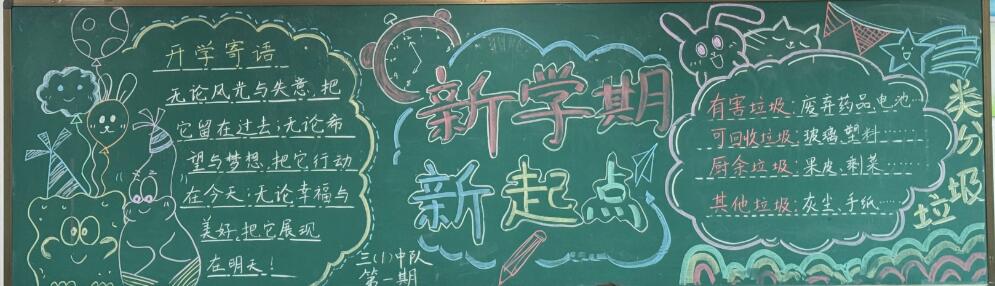 开学寄语
无论风光与失意,把
它留在过去;无论希
望与梦想,把它行动
在今天;无论幸福与
美好,把它展现
在明天!
三(1)中队
第一期
新学期
新起点
有害垃圾:废弃药品,电池……
可回收垃圾:玻璃,塑料……
厨余垃圾:果皮,剩菜……
其他垃圾:灰尘,手纸……
垃圾分类